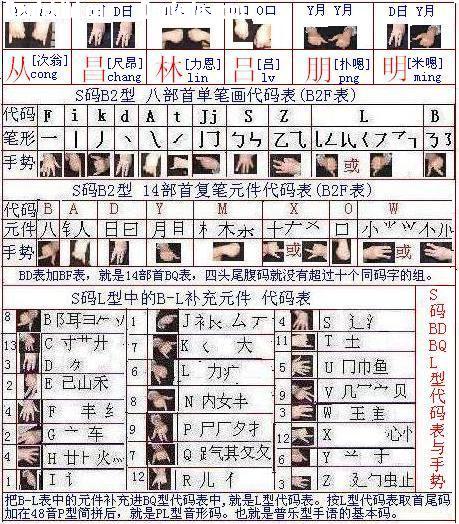 D日 Y月
从 昌 林 吕 朋 明
[次翁] [尺昂] [力恩] [吕] [扑嗯] [米嗯]
cong chang lin lv png ming
S码B2型 八部首单笔画代码表(B2F表)
代码 F i k d A t Jj S Z L B
笔形
手势 或
S码B2型 14部首复笔元件代码表(B2F表)
代码 B A D Y M X O W
元件 八 人 日曰 月目 木 十 口 小
手势 或 或
BD表加BF表，就是14部首BQ表，四头尾腹码就没有超过十个同码字的组。
S码L型中的B-L补充元件 代码表
8 B 阝耳彐 1 J 4 S 辶氵
13 C 寸艹廾 7 K 大 11 T 土
3 D 6 L 力疒 5 U 冂巾鱼
2 E 已山禾 8 N 内女 9 V 几宀贝
4 F 丰纟 9 P 尸厂夕扌 3 W 王
2 G 亠车 7 Q 气其欠攵 12 X 心忄
4 H 廿火灬 12 R 儿亻 6 Y 丫于
1 I 讠 3 Z 之勹虫止
S码BDBQL型代码表与手势
把B-L表中的元件补充进BQ型代码表中,就是L型代码表。按L型代码表取首尾码
加在48音P型简拼后，就是PL型音形码。也就是普乐型手语的基本码。